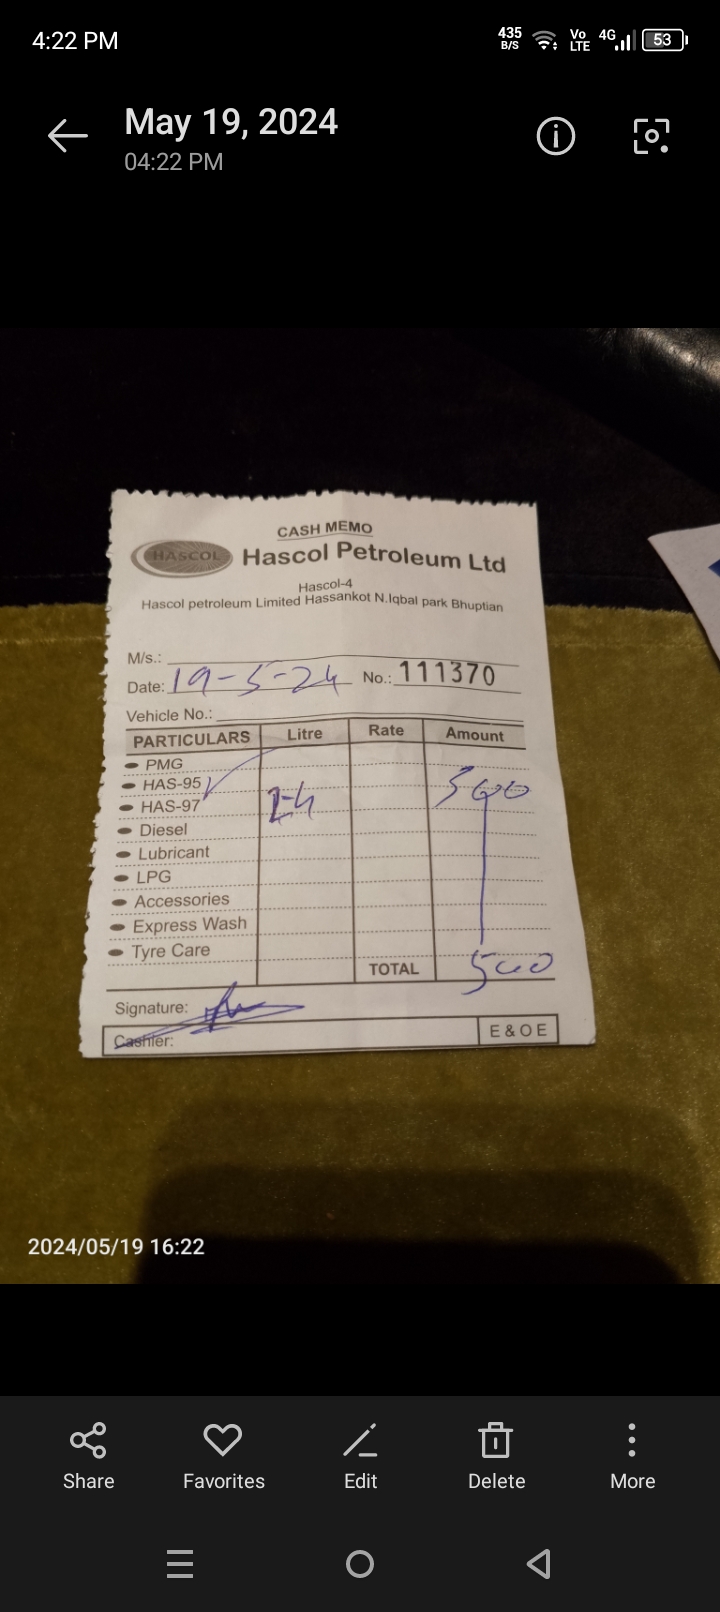 4:22 PM
435 B/S Vo LTE 4G 53
May 19, 2024
04:22 PM
CASH MEMO
HASCOL Hascol Petroleum Ltd
Hascol-4
Hascol petroleum Limited Hassankot N.Iqbal park Bhuptian
M/s.:
Date: 19-5-24 No.: 111370
Vehicle No.:
PARTICULARS Litre Rate Amount
PMG
HAS-95
HAS-97 500
Diesel
Lubricant
LPG
Accessories
Express Wash
Tyre Care
TOTAL 500
Signature:
Cashier: E & O E
2024/05/19 16:22
Share Favorites Edit Delete More